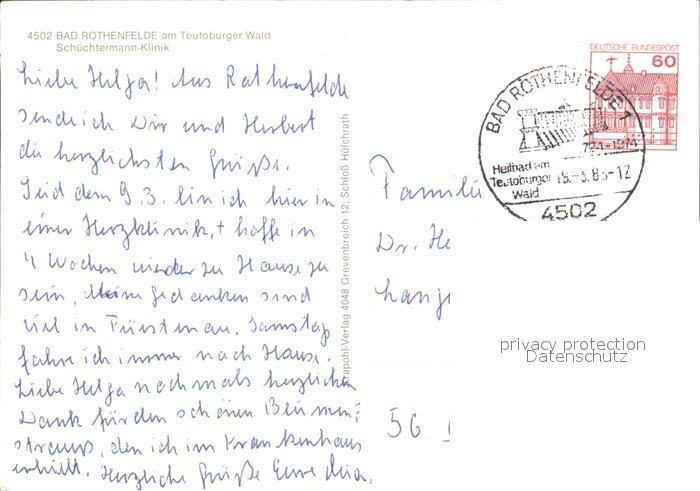 4502 BAD ROTHENFELDE am Teutoburger Wald
Schüchtermann-Klinik
Liebe Helga! Aus Rothenfelde
sende ich Dir und Herbert
die herzlichsten Grüße.
Seid dem 9.3. bin ich hier in
einer Herzklinik, + hoffe in
4 Wochen wieder zu Hause zu
sein, Meine Gedanken sind
viel in Fürstenau. Samstag
fahre ich immer nach Hause.
Liebe Helga nochmals herzlichen
Dank für den schönen Blumen=
strauß, den ich im Krankenhaus
erhielt. Herzliche Grüße Eure
rapohl-Verlag 4048 Grevenbroich 12, Schloß Hülchrath
DEUTSCHE BUNDESPOST
60
BAD ROTHENFELDE 1
724-1974
Heilbad am
Teutoburger
Wald
4502
Familie
Dr. He
lange
56
privacy protection
Datenschutz